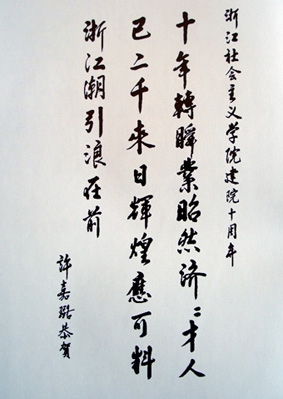 浙江社会主义学院建院十周年
十年轉瞬業昭然济〻才人
已二千来日輝煌應可料
浙江潮引浪在前
許嘉璐恭賀